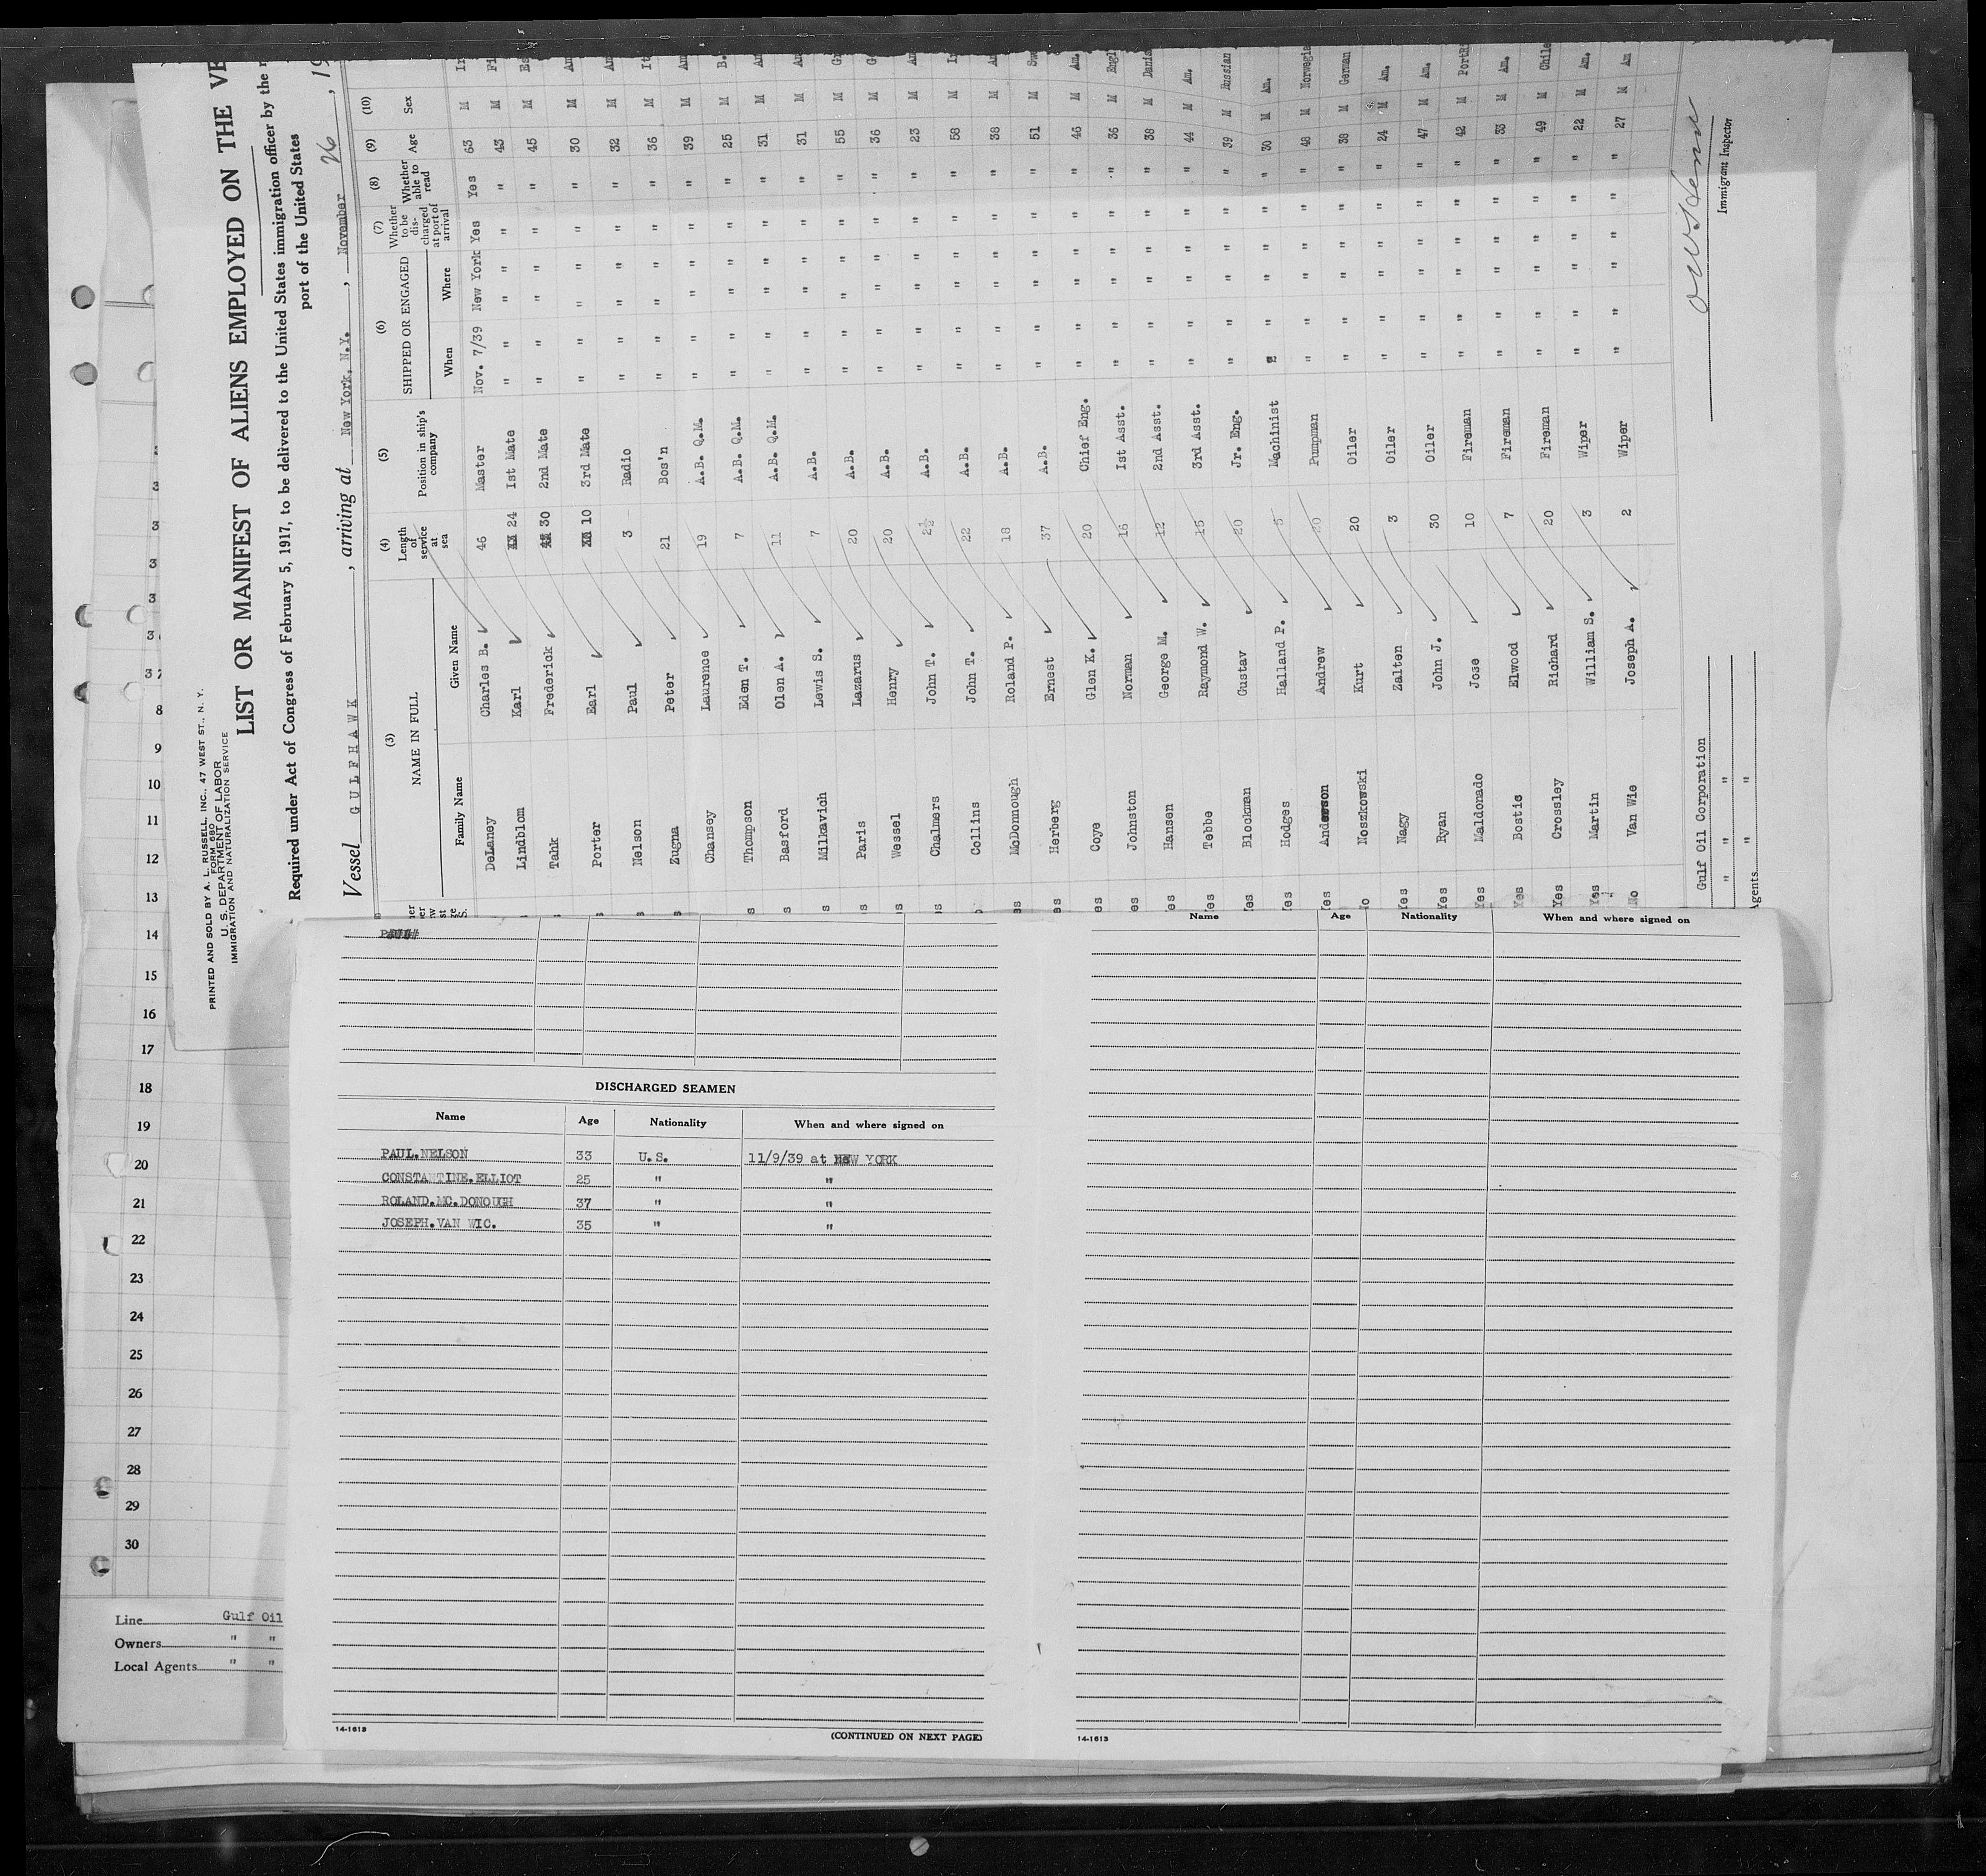 PRINTED AND SOLD BY A. L. RUSSELL, INC., 47 WEST ST., N. Y.
FORM 680
U. S. DEPARTMENT OF LABOR
IMMIGRATION AND NATURALIZATION SERVICE
LIST OR MANIFEST OF ALIENS EMPLOYED ON THE VE
Required under Act of Congress of February 5, 1917, to be delivered to the United States immigration officer by the r
port of the United States
Vessel GULFHAWK, arriving at New York, N.Y., November 26, 19
(3) (4) (5) (6) (7) (8) (9) (10)
NAME IN FULL Length of service at sea Position in ship's company SHIPPED OR ENGAGED Whether to be discharged at port of arrival Whether able to read Age Sex
Family Name Given Name When Where
DeLaney Charles B. 46 Master Nov. 7/39 New York Yes Yes 63 M
Lindblom Karl 24 1st Mate " " " " 43 M
Tahk Frederick 30 2nd Mate " " " " 45 M
Porter Earl 10 3rd Mate " " " " 30 M
Nelson Paul 3 Radio " " " " 32 M
Zugna Peter 21 Bos'n " " " " 36 M
Chansey Laurence 19 A.B. Q.M. " " " " 39 M
Thompson Eden T. 7 A.B. Q.M. " " " " 25 M
Basford Olen A. 11 A.B. Q.M. " " " " 31 M
Milkavich Lewis S. 7 A.B. " " " " 31 M
Paris Lazarus 20 A.B. " " " " 55 M
Wessel Henry 20 A.B. " " " " 36 M
Chalmers John T. 2½ A.B. " " " " 23 M
Collins John T. 22 A.B. " " " " 58 M
McDonnough Roland P. 18 A.B. " " " " 38 M
Herberg Ernest 37 A.B. " " " " 51 M
Coye Glen K. 20 Chief Eng. " " " " 46 M Am.
Johnston Norman 16 1st Asst. " " " " 36 M Engl
Hansen George M. 12 2nd Asst. " " " " 38 M Danis
Tebbe Raymond W. 15 3rd Asst. " " " " 44 M Am.
Blockman Gustav 20 Jr. Eng. " " " " 39 M Russian
Hodges Halland P. 5 Machinist " " " " 30 M Am.
Anderson Andrew 20 Pumpman " " " " 48 M Norwegia
Noszkowski Kurt 20 Oiler " " " " 38 M German
Nagy Zalten 3 Oiler " " " " 24 M Am.
Ryan John J. 30 Oiler " " " " 47 M Am.
Maldonado Jose 10 Fireman " " " " 42 M PortRi
Bostic Elwood 7 Fireman " " " " 33 M Am.
Crossley Richard 20 Fireman " " " " 49 M Chile
Martin William S. 3 Wiper " " " " 22 M Am.
Van Wie Joseph A. 2 Wiper " " " " 27 M Am
Gulf Oil Corporation
" " "
Agents " "
Immigrant Inspector
8
9
10
11
12
13
14
15
16
17
18
19
20
21
22
23
24
25
26
27
28
29
30
Line Gulf Oil
Owners " "
Local Agents " "
DISCHARGED SEAMEN
Name Age Nationality When and where signed on
PAUL.NELSON 33 U.S. 11/9/39 at NEW YORK
CONSTANTINE.ELLIOT 25 " "
ROLAND.MC.DONOUGH 37 " "
JOSEPH.VAN WIC. 35 " "
14-1613 (CONTINUED ON NEXT PAGE)
Name Age Nationality When and where signed on
14-1613